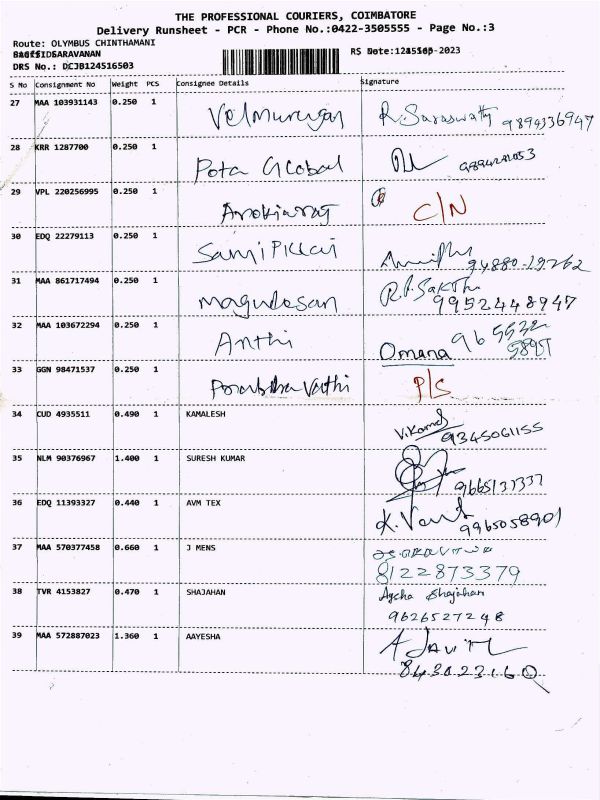 THE PROFESSIONAL COURIERS, COIMBATORE
Delivery Runsheet - PCR - Phone No.:0422-3505555 - Page No.:3
Route: OLYMBUS CHINTHAMANI
SARAVANAN
RS Date: -2023
DRS No.: DCJB124516503
S No Consignment No Weight PCS Consignee Details Signature
27 MAA 103931143 0.250 1 Velmurugan R. Saraswathy 9894336947
28 KRR 1287700 0.250 1 Pota Global
29 VPL 220256995 0.250 1 Arokiaraj C/N
30 EDQ 22279113 0.250 1 Samipillai 94880-19262
31 MAA 861717494 0.250 1 Magudesan R.P. Sakthi
9952448947
32 MAA 103672294 0.250 1 Anthi Omana 965532
33 GGN 98471537 0.250 1 P/S
34 CUD 4935511 0.490 1 KAMALESH V.Kamal 9345061155
35 NLM 90376967 1.400 1 SURESH KUMAR 9665137337
36 EDQ 11393327 0.440 1 AVM TEX K. 9965058901
37 MAA 570377458 0.660 1 J MENS
8122873379
38 TVR 4153827 0.470 1 SHAJAHAN Aysha Shajahan
9626527248
39 MAA 572887023 1.360 1 AAYESHA A
8430223160